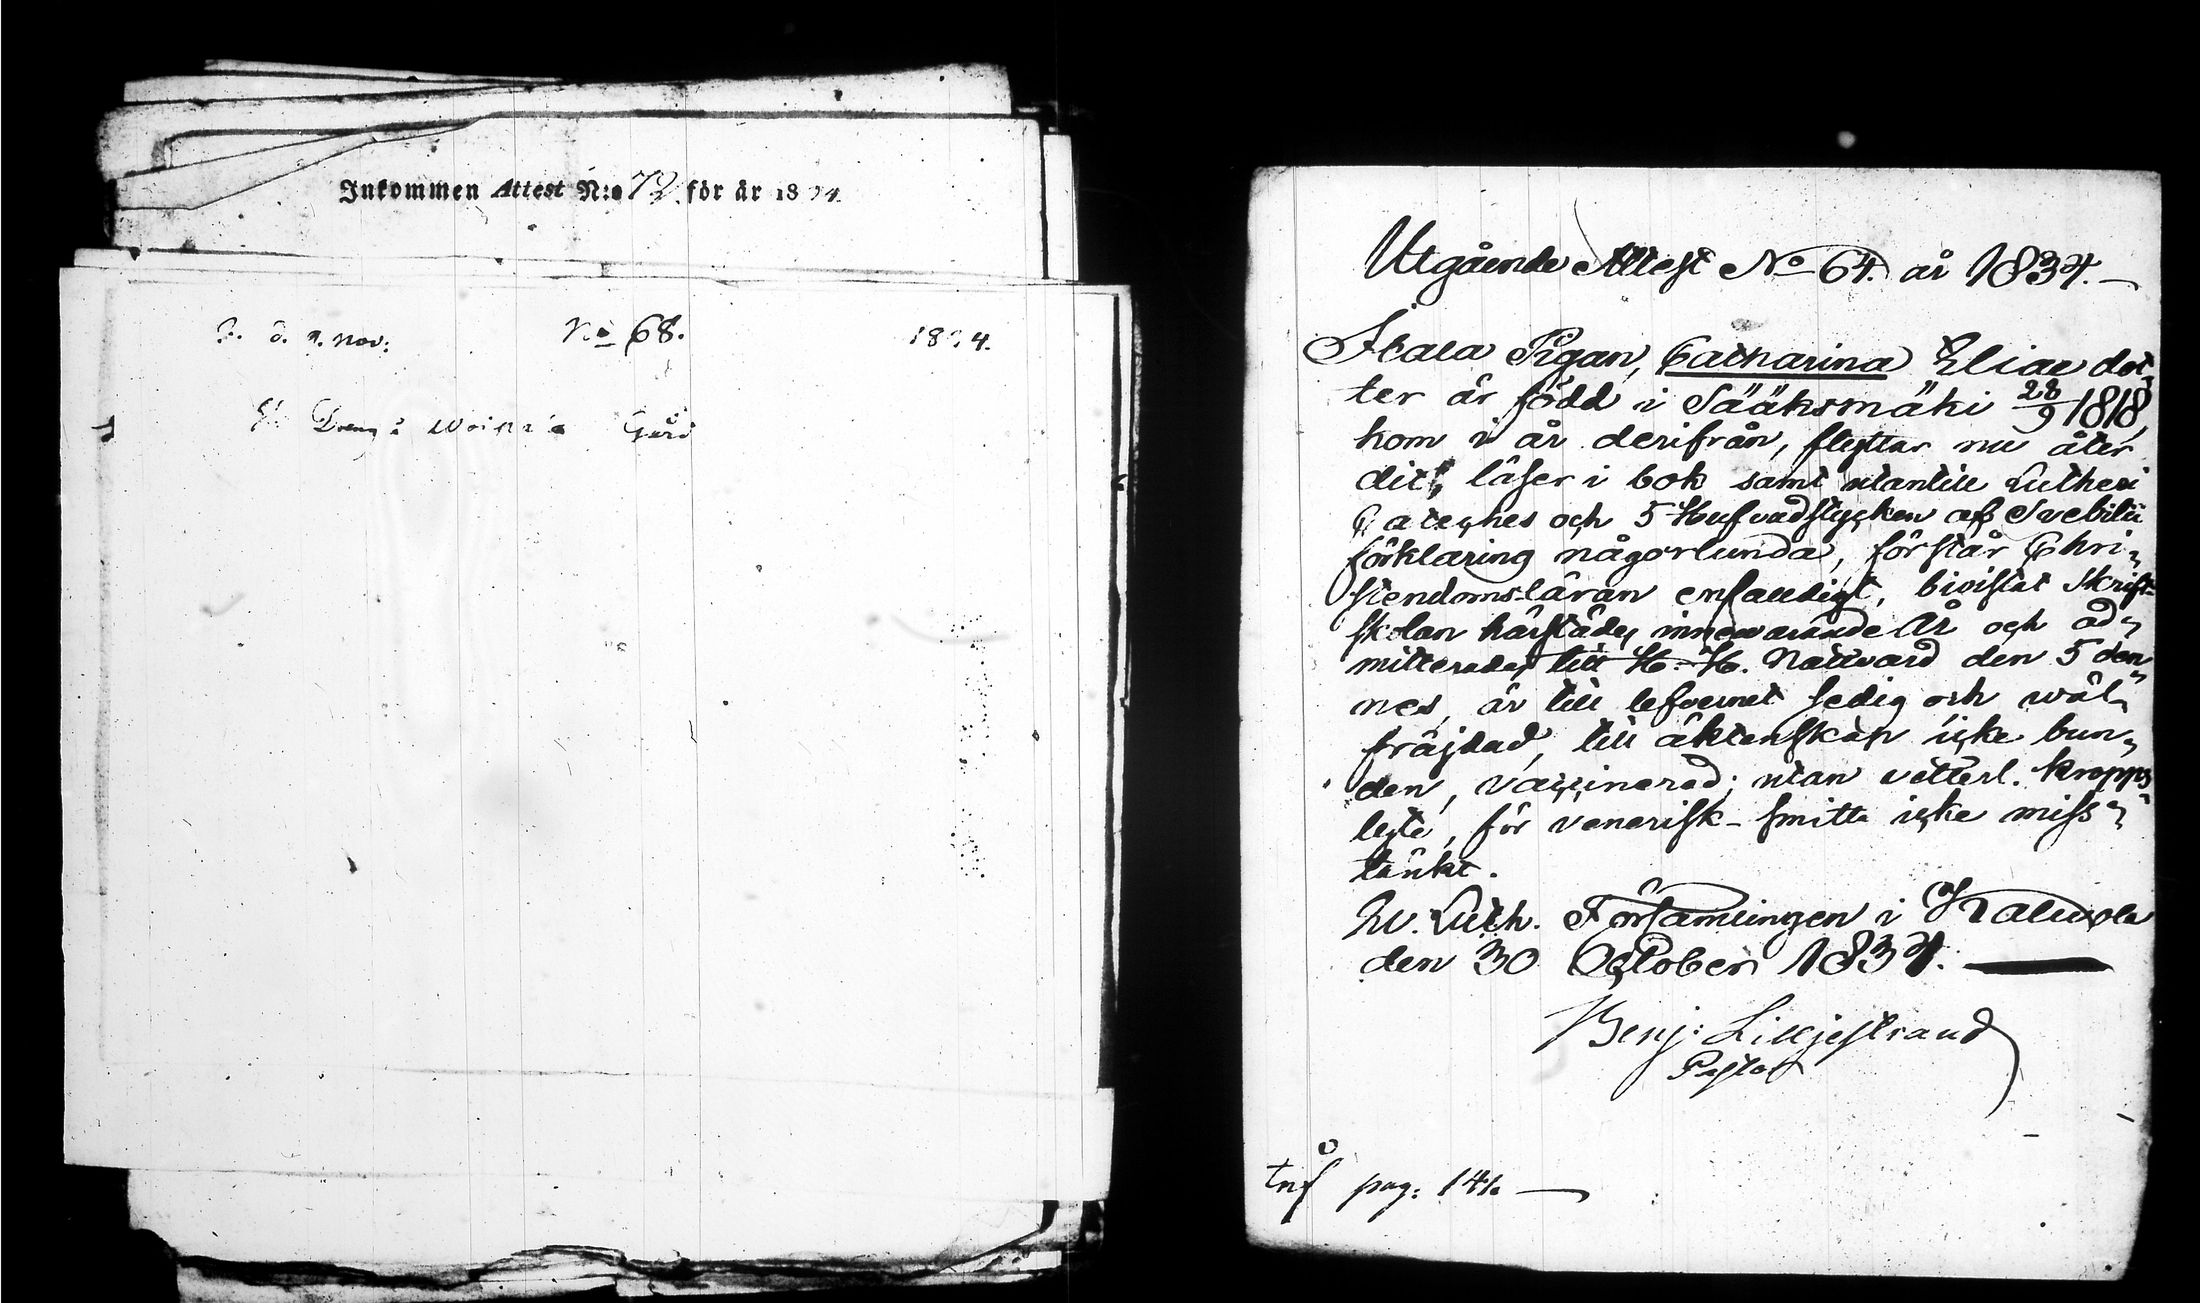 Inkommen Attest N:o 72 för år 18 4.
d. 9. Nov:
No 68.
18 4.
Gård
Utgående Attest No 64. år 1834.
Pigan, Catharina Eliae dot„
ter är född i Sääksmäki 28/9 1818,
kom i år derifrån, flyttar nu åter
dit, läser i bok samt utantill Lutheri
Cateches och 5 Hufvudstycken af Svebilii
förklaring någorlunda, förstår Chri„
stendomsläran enfaldigt, bivistat Skrift„
skolan härstädes innevarande År och ad„
mitterades till H. H. Nattvard den 5 den„
nes, är till lefvernet sedig och wäl„
fräjdad, till äktenskap icke bun„
den, vaccinerad; utan vetterl. kropps„
lyte, för venerisk smitta icke miss„
tänkt.
Ev. Luth. Församlingen i Kalwola
den 30 October 1834.
Benj: Lilljestrand
Pastor
pag: 141.